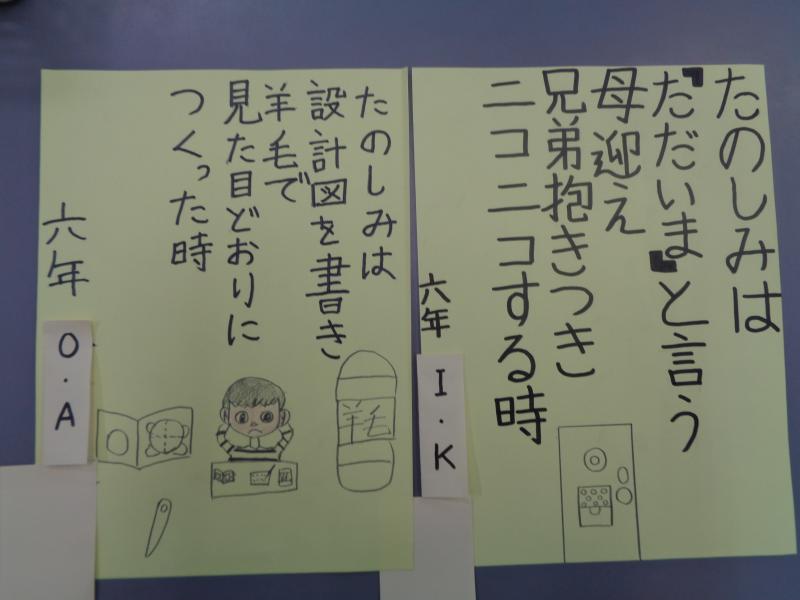 たのしみは
『ただいま』と言う
母迎え
兄弟抱きつき
ニコニコする時
六年
I.K
たのしみは
設計図を書き
羊毛で
見た目どおりに
つくった時
六年
O.A
羊毛